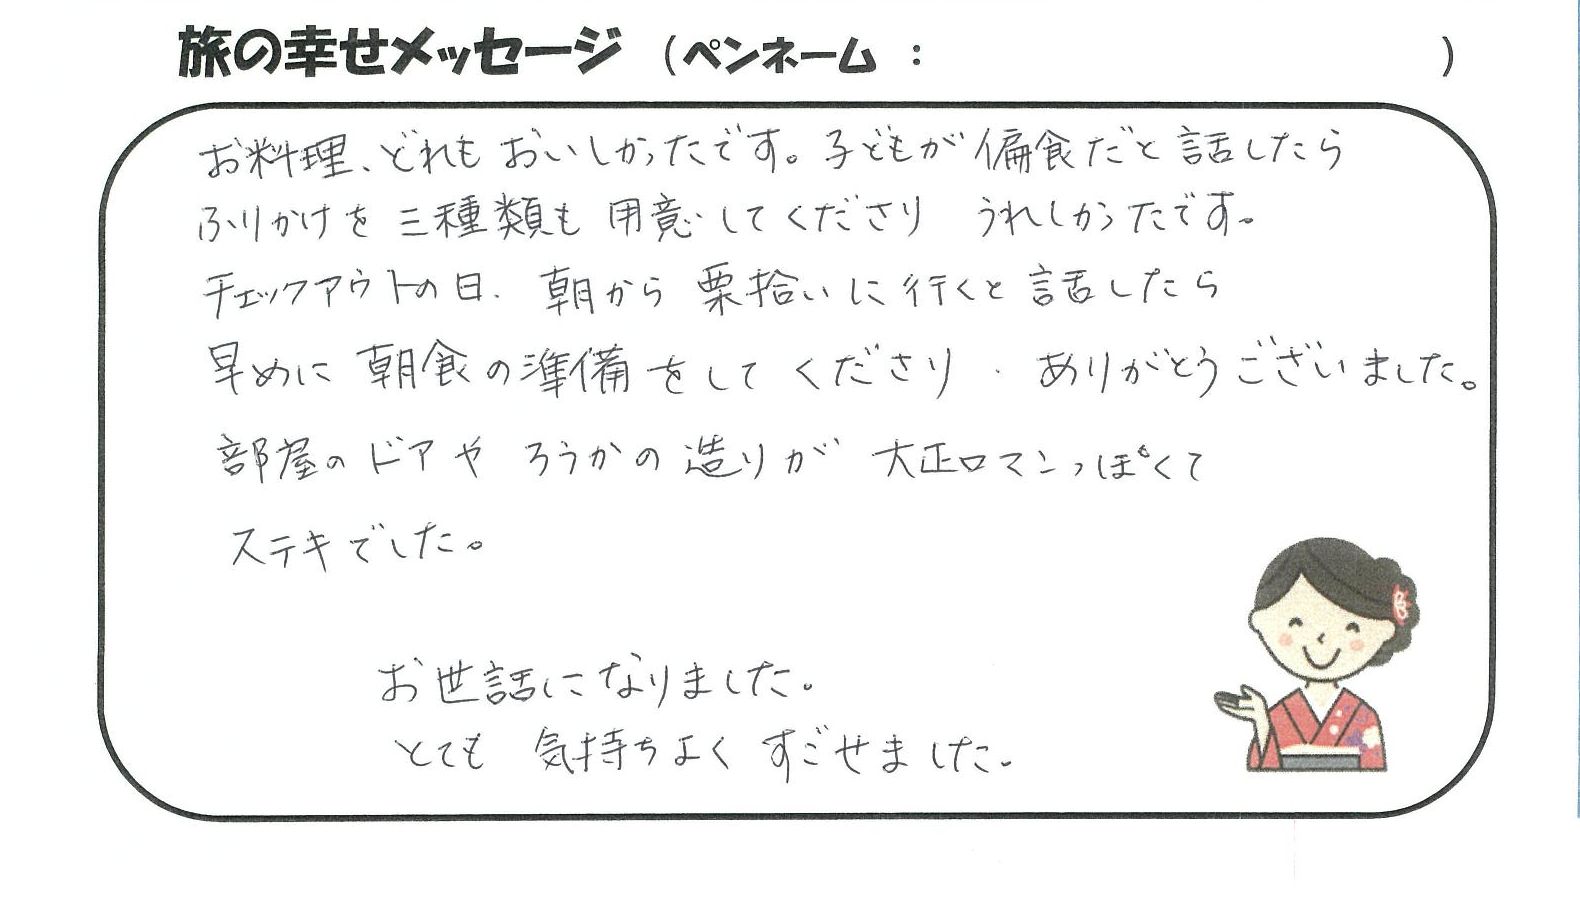 旅の幸せメッセージ （ペンネーム ： ）
お料理、どれもおいしかったです。子どもが偏食だと話したら
ふりかけを三種類も用意してくださり うれしかったです。
チェックアウトの日、朝から栗拾いに行くと話したら
早めに朝食の準備をしてくださり、ありがとうございました。
部屋のドアやろうかの造りが 大正ロマンっぽくて
ステキでした。
お世話になりました。
とても 気持ちよく すごせました。